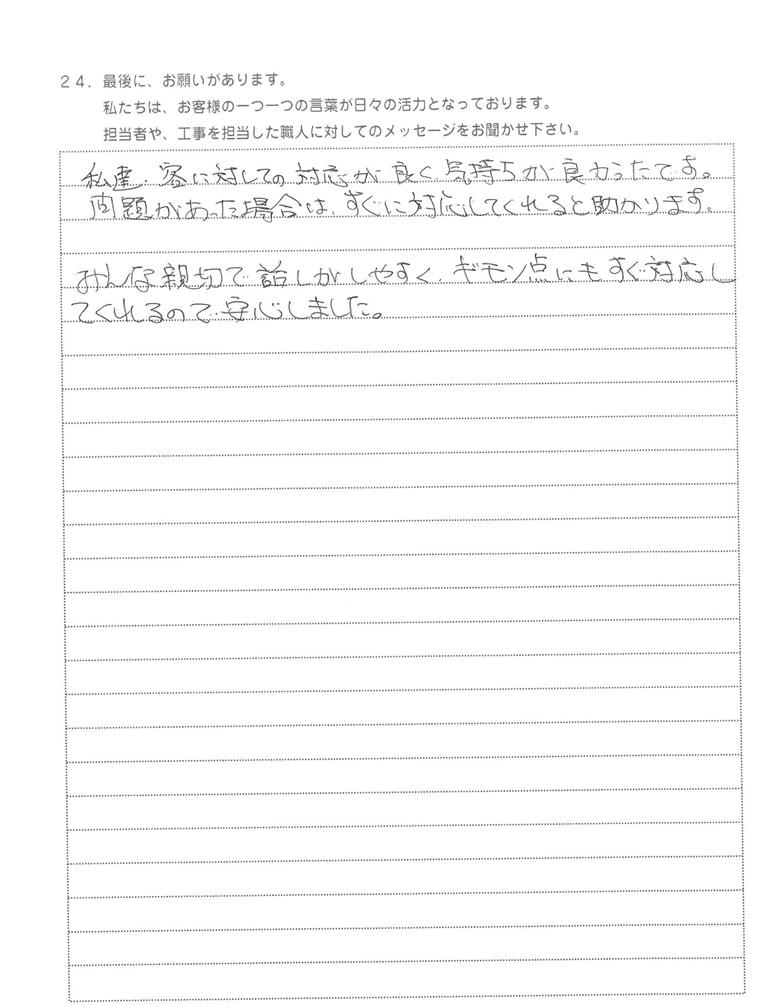 ２４．最後に、お願いがあります。
私たちは、お客様の一つ一つの言葉が日々の活力となっております。
担当者や、工事を担当した職人に対してのメッセージをお聞かせ下さい。
私達、客に対しての対応が良く気持ちが良かったです。
問題があった場合は、すぐに対応してくれると助かります。
みんな親切で話しがしやすく、ギモン点にもすぐ対応し
てくれるので安心しました。